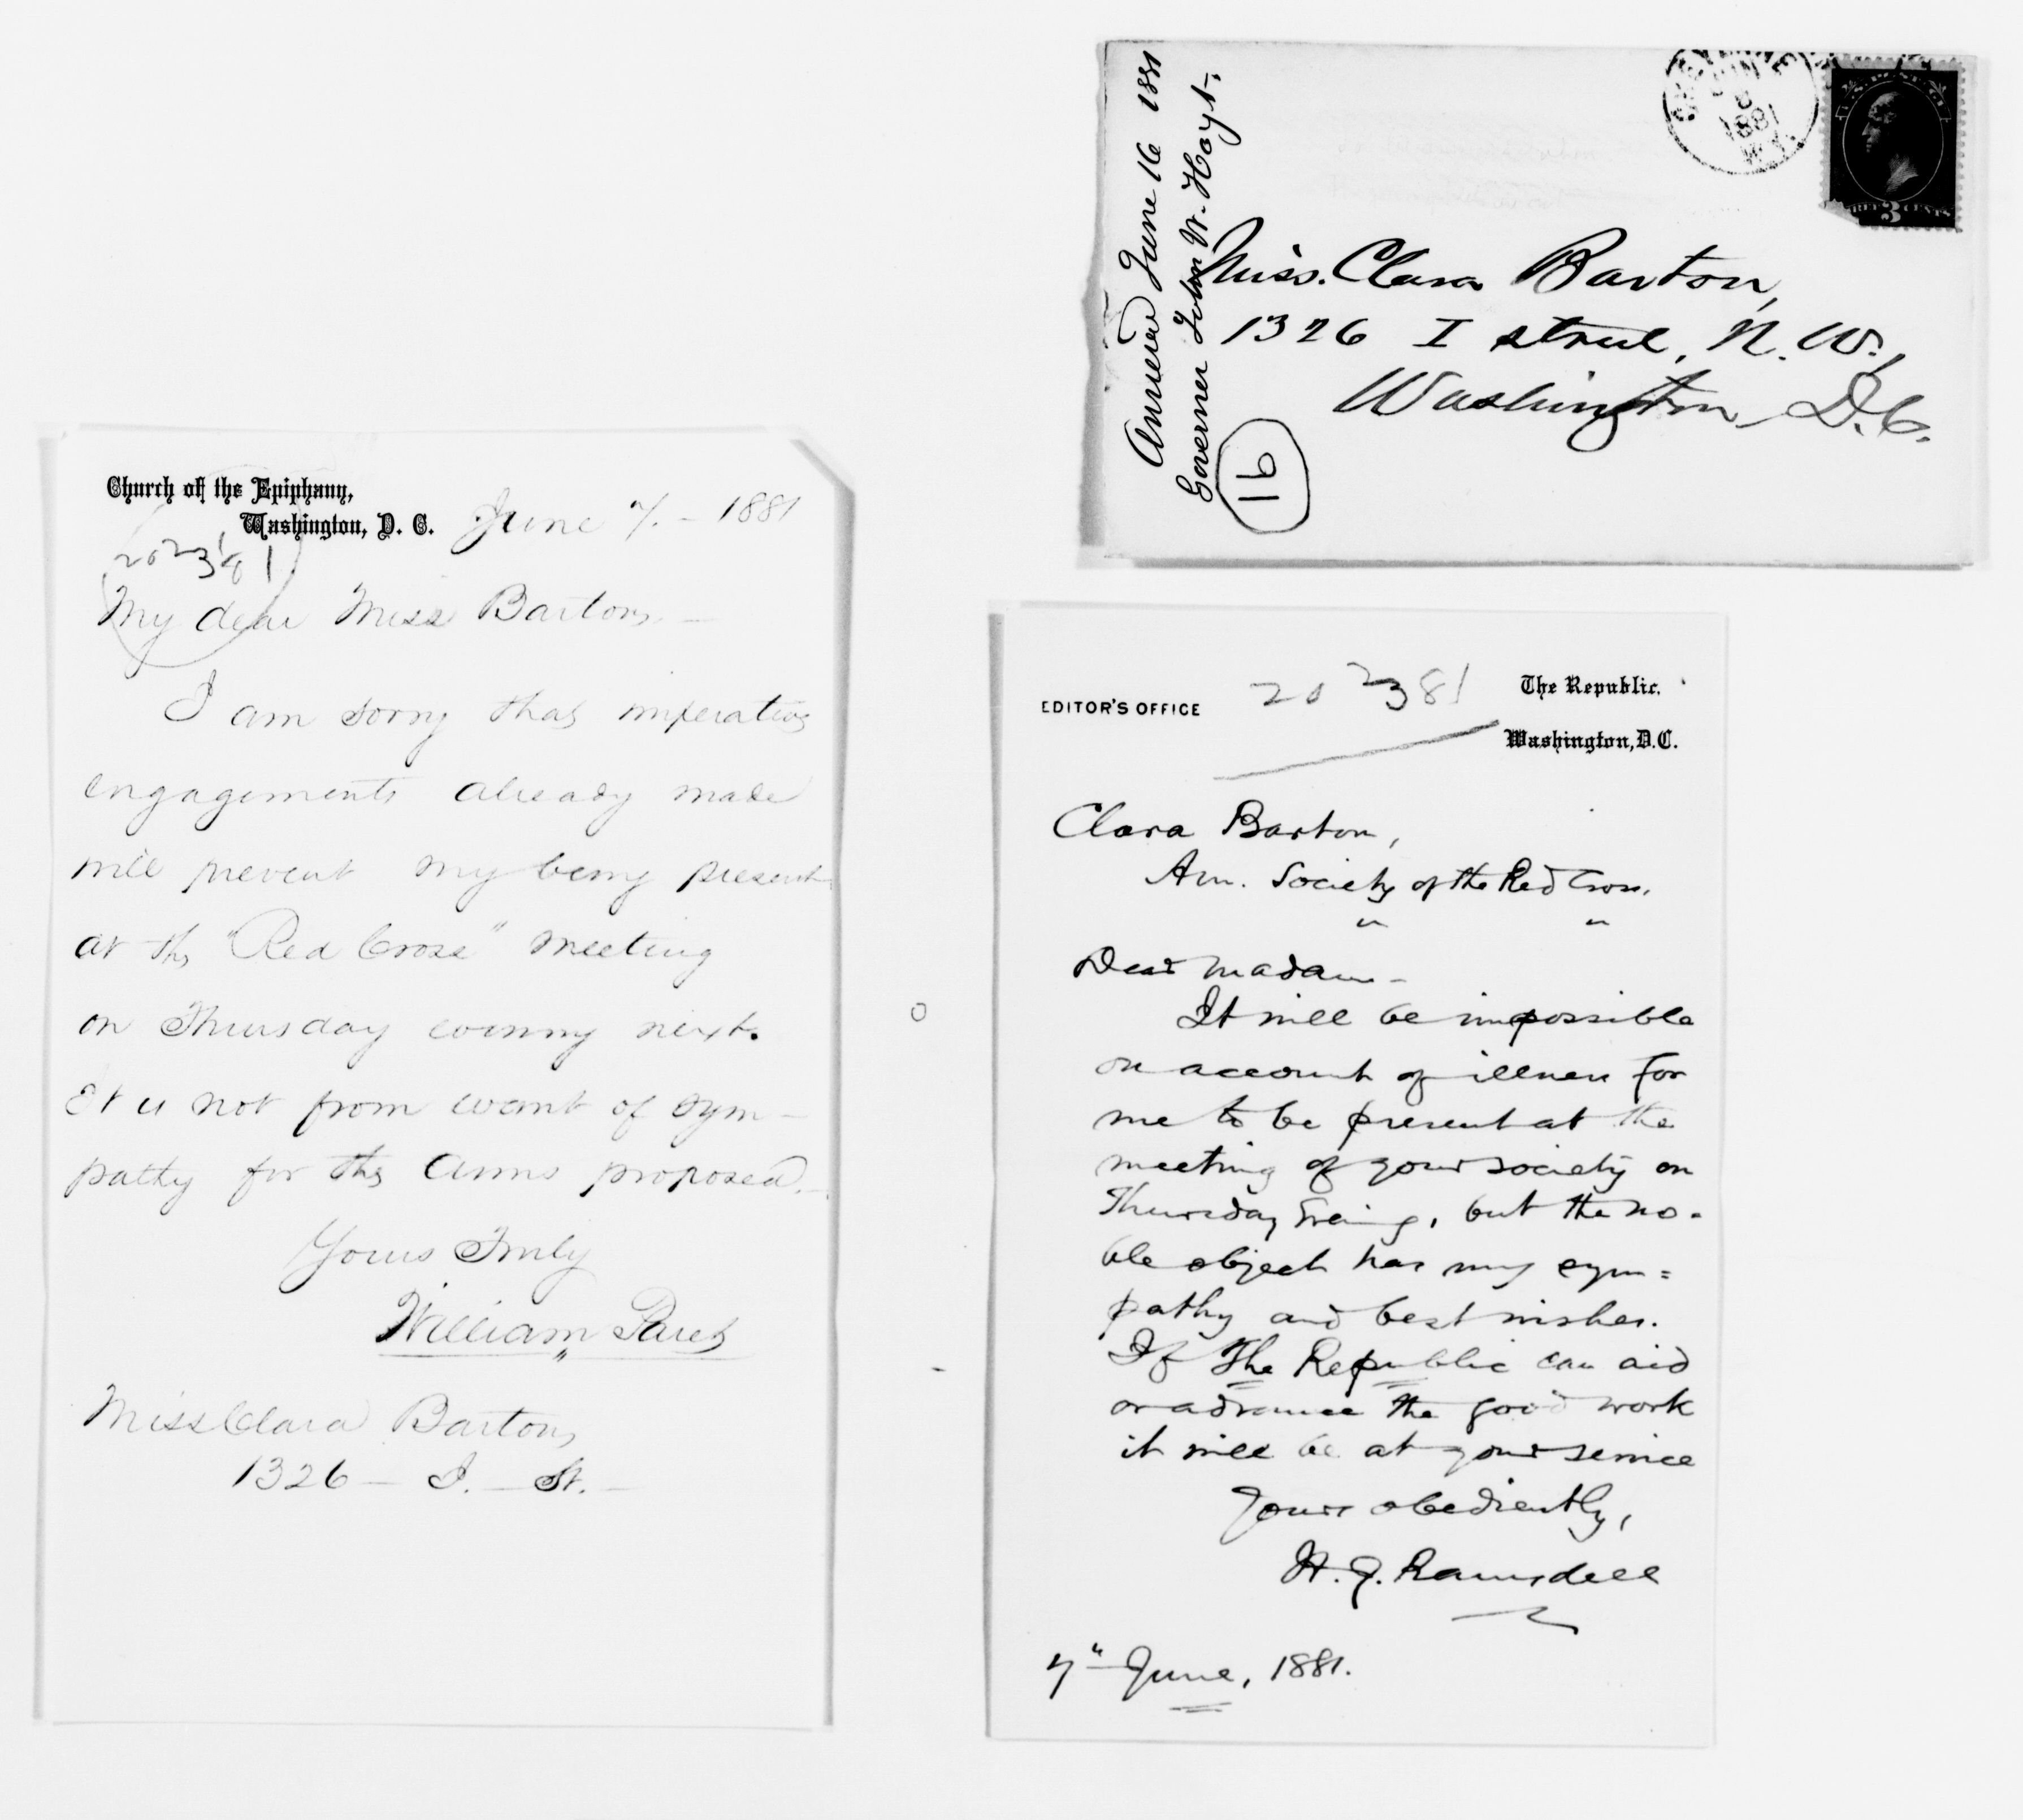 Church of the Epiphany,
Washington, D. C. June 7. - 1881
My dear Miss Barton, -
I am sorry that imperative
engagements already made
will prevent my being present
at the "Red Cross" meeting
on Thursday evening next.
It is not from want of sym-
pathy for the aims proposed. -
Yours Truly
William Paret
Miss Clara Barton,
1326 - I. - St. -
Answered June 16 1881
Governer John W. Hoyt,
16
8
1881
U.S. POSTAGE
THREE 3 CENTS
Miss. Clara Barton,
1326 I street, N. W.,
Washington, D. C.
EDITOR'S OFFICE
The Republic.
Washington, D.C.
Clara Barton,
Am. Society of the Red Cross.
" "
Dear Madam -
It will be impossible
on account of illness for
me to be present at the
meeting of your society on
Thursday Evening, but the no-
ble object has my sym=
pathy and best wishes.
If The Republic can aid
or advance the good work
it will be at your service
Yours obediently,
H. J. Ramsdell
7" June, 1881.